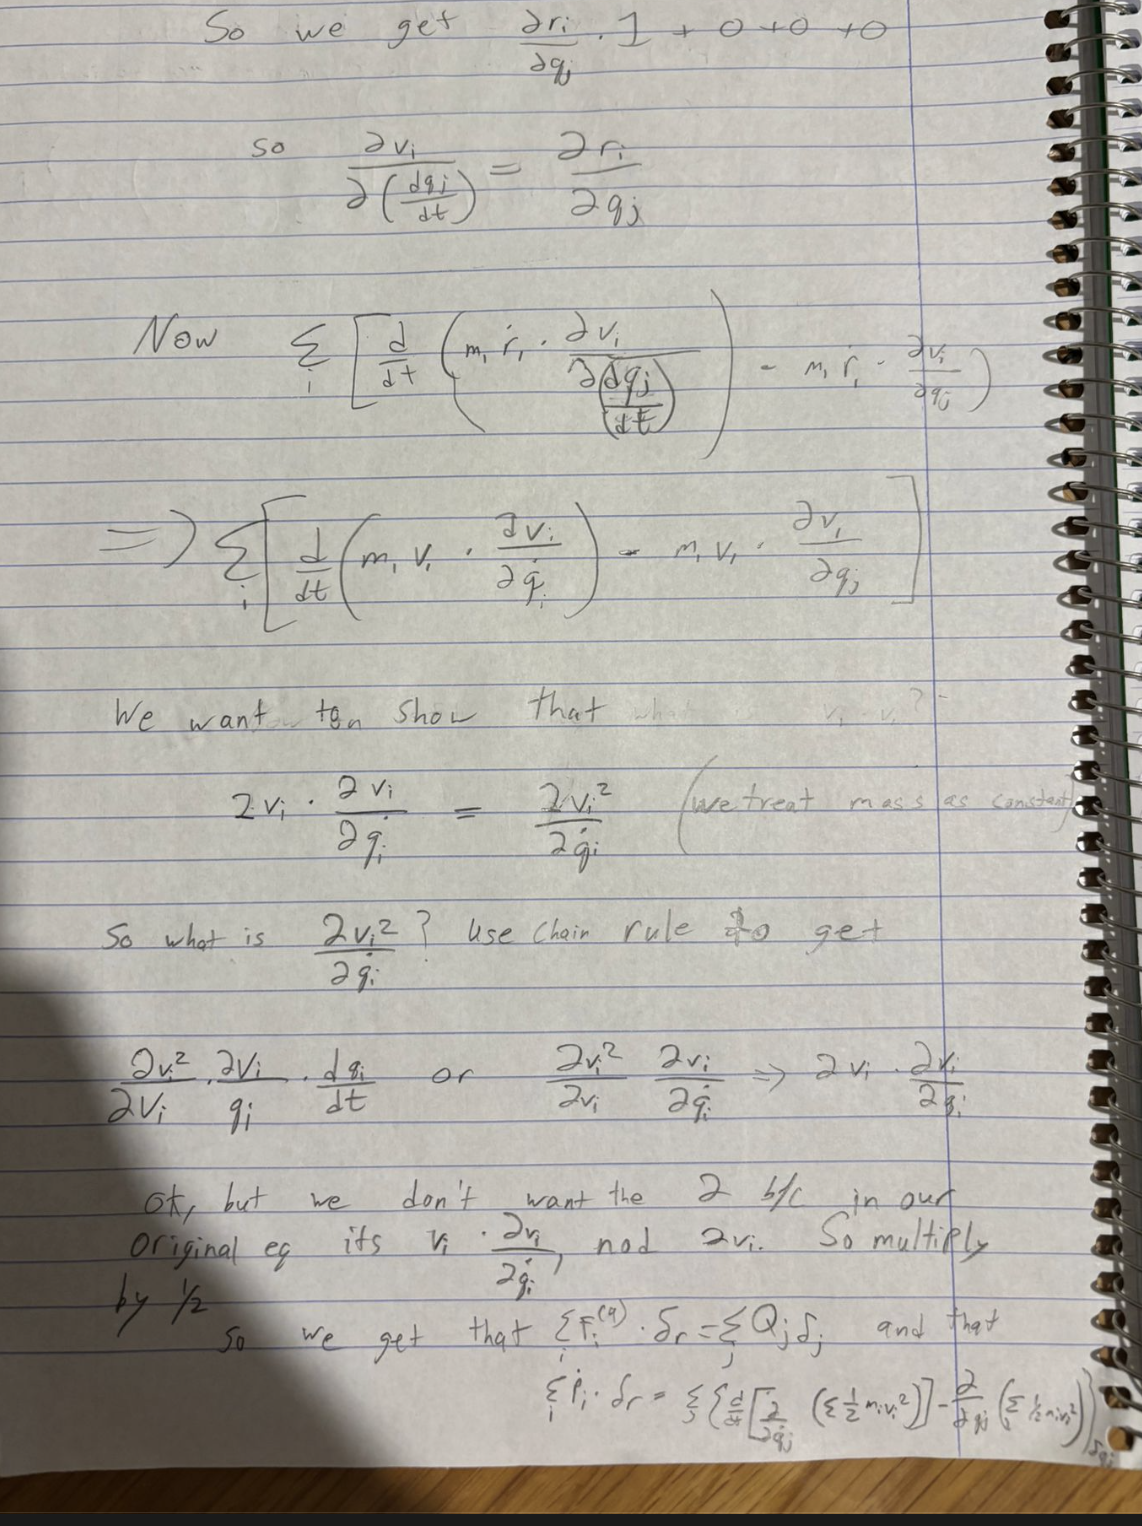 So we get ∂rᵢ/∂qⱼ · 1 + 0 + 0 + 0
so ∂vᵢ/∂(dqⱼ/dt) = ∂rᵢ/∂qⱼ
Now Σᵢ [ d/dt ( mᵢ ṙᵢ · ∂vᵢ/∂(dqⱼ/dt) ) - mᵢ ṙᵢ · ∂vᵢ/∂qⱼ )
=> Σᵢ [ d/dt ( mᵢ vᵢ · ∂vᵢ/∂q̇ⱼ ) - mᵢ vᵢ · ∂vᵢ/∂qⱼ ]
We want to show that
2vᵢ · ∂vᵢ/∂q̇ⱼ = ∂vᵢ²/∂q̇ⱼ (we treat mass as constant)
So what is ∂vᵢ²/∂q̇ⱼ? Use chain rule to get
∂vᵢ²/∂vᵢ · ∂vᵢ/qⱼ · dqⱼ/dt or ∂vᵢ²/∂vᵢ ∂vᵢ/∂q̇ⱼ => 2vᵢ · ∂vᵢ/∂q̇ⱼ
ok, but we don't want the 2 b/c in our
original eq its vᵢ · ∂vᵢ/∂q̇ⱼ, nod 2vᵢ. So multiply
by 1/2
so we get that Σᵢ Fᵢ⁽ᵃ⁾ · δr = Σⱼ Qⱼ δⱼ and that
Σᵢ ṗᵢ · δr = Σⱼ { d/dt [ ∂/∂q̇ⱼ (Σ ½ mᵢvᵢ²) ] - ∂/∂qⱼ (Σ ½ mᵢvᵢ²) } δqⱼ